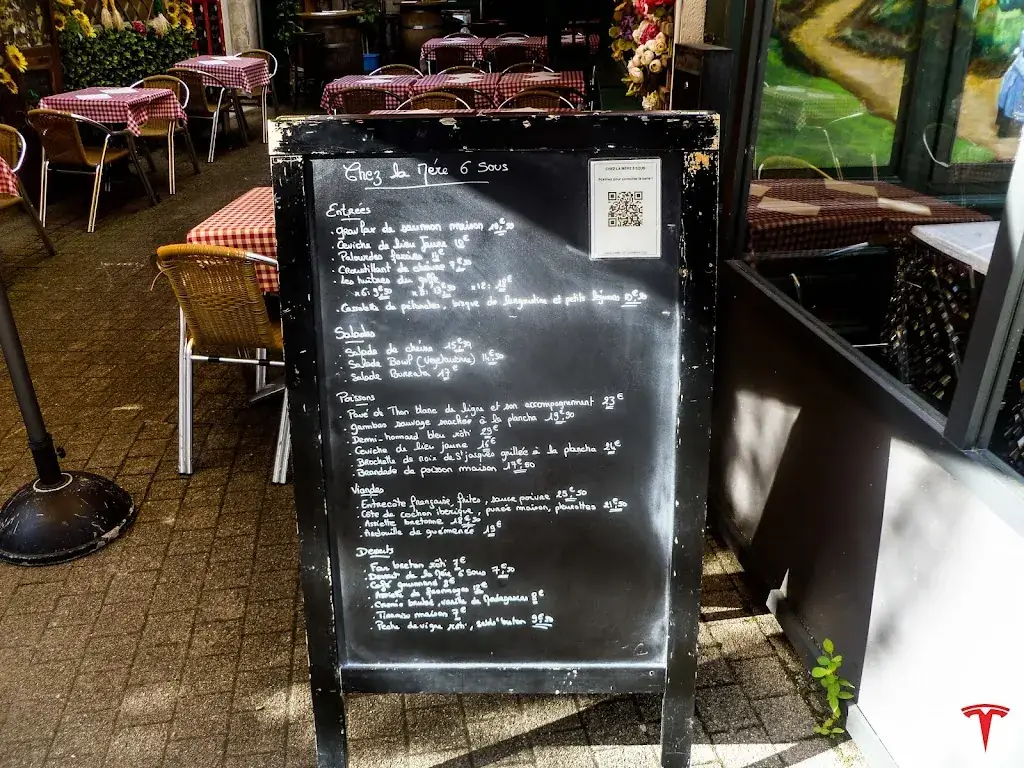 Chez la Mère 6 Sous
CHEZ LA MÈRE 6 SOUS
Entrées
. gravlax de saumon maison
. Ceviche de lieu jaune
. Palourdes farcies
. Croustillant de chèvre 7€50
. Les huîtres du golfe
x6: 9€50 x9: 13€50 x12: 18€
. Cassolette de pétoncles, bisque de langoustine et petits légumes 10€50
Salades
. Salade de chèvre 15€50
. Salade Bowl (Végétarienne) 14€50
. Salade Burrata 13€
Poissons
. Pavé de Thon blanc de ligne et son accompagnement 23€
. gambas sauvage snackée à la plancha 19€90
. Demi-homard bleu rôti 29€
. Ceviche de lieu jaune 16€
. Brochette de noix de St jacques grillée à la plancha 24€
. Brandade de poisson maison 17€50
Viandes
. Entrecôte française, frites, sauce poivre 25€50
. Côte de cochon ibérique, purée maison, pleurottes 21€50
. Assiette bretonne 18€50
. Andouille de guémené 19€
Desserts
. Far breton rôti 7€
. Dessert de la Mère 6 Sous 7€50
. Café gourmand 9€
. Assiette de fromages 12€
. Crème brulée, vanille de Madagascar 8€
. Tiramisu maison 7€
. Pêche de vigne rôti, sablé breton 9€50